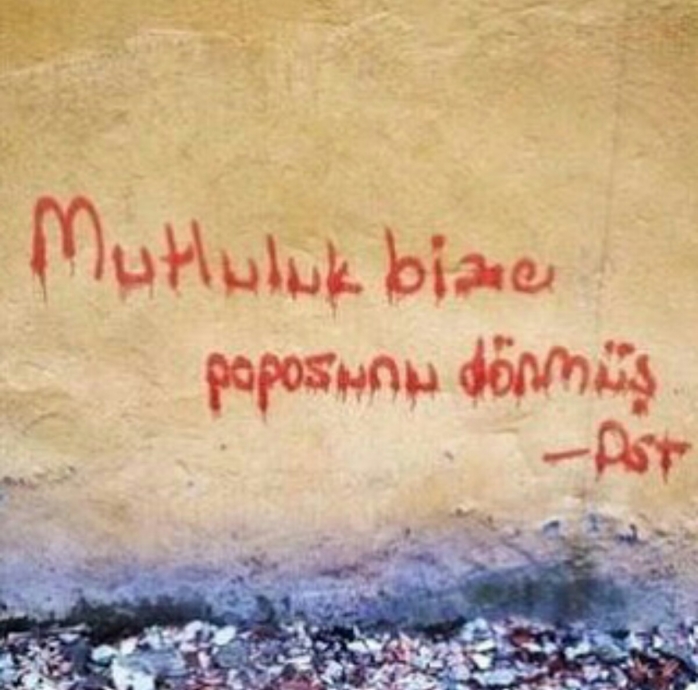 Mutluluk bize
poposunu dönmüş